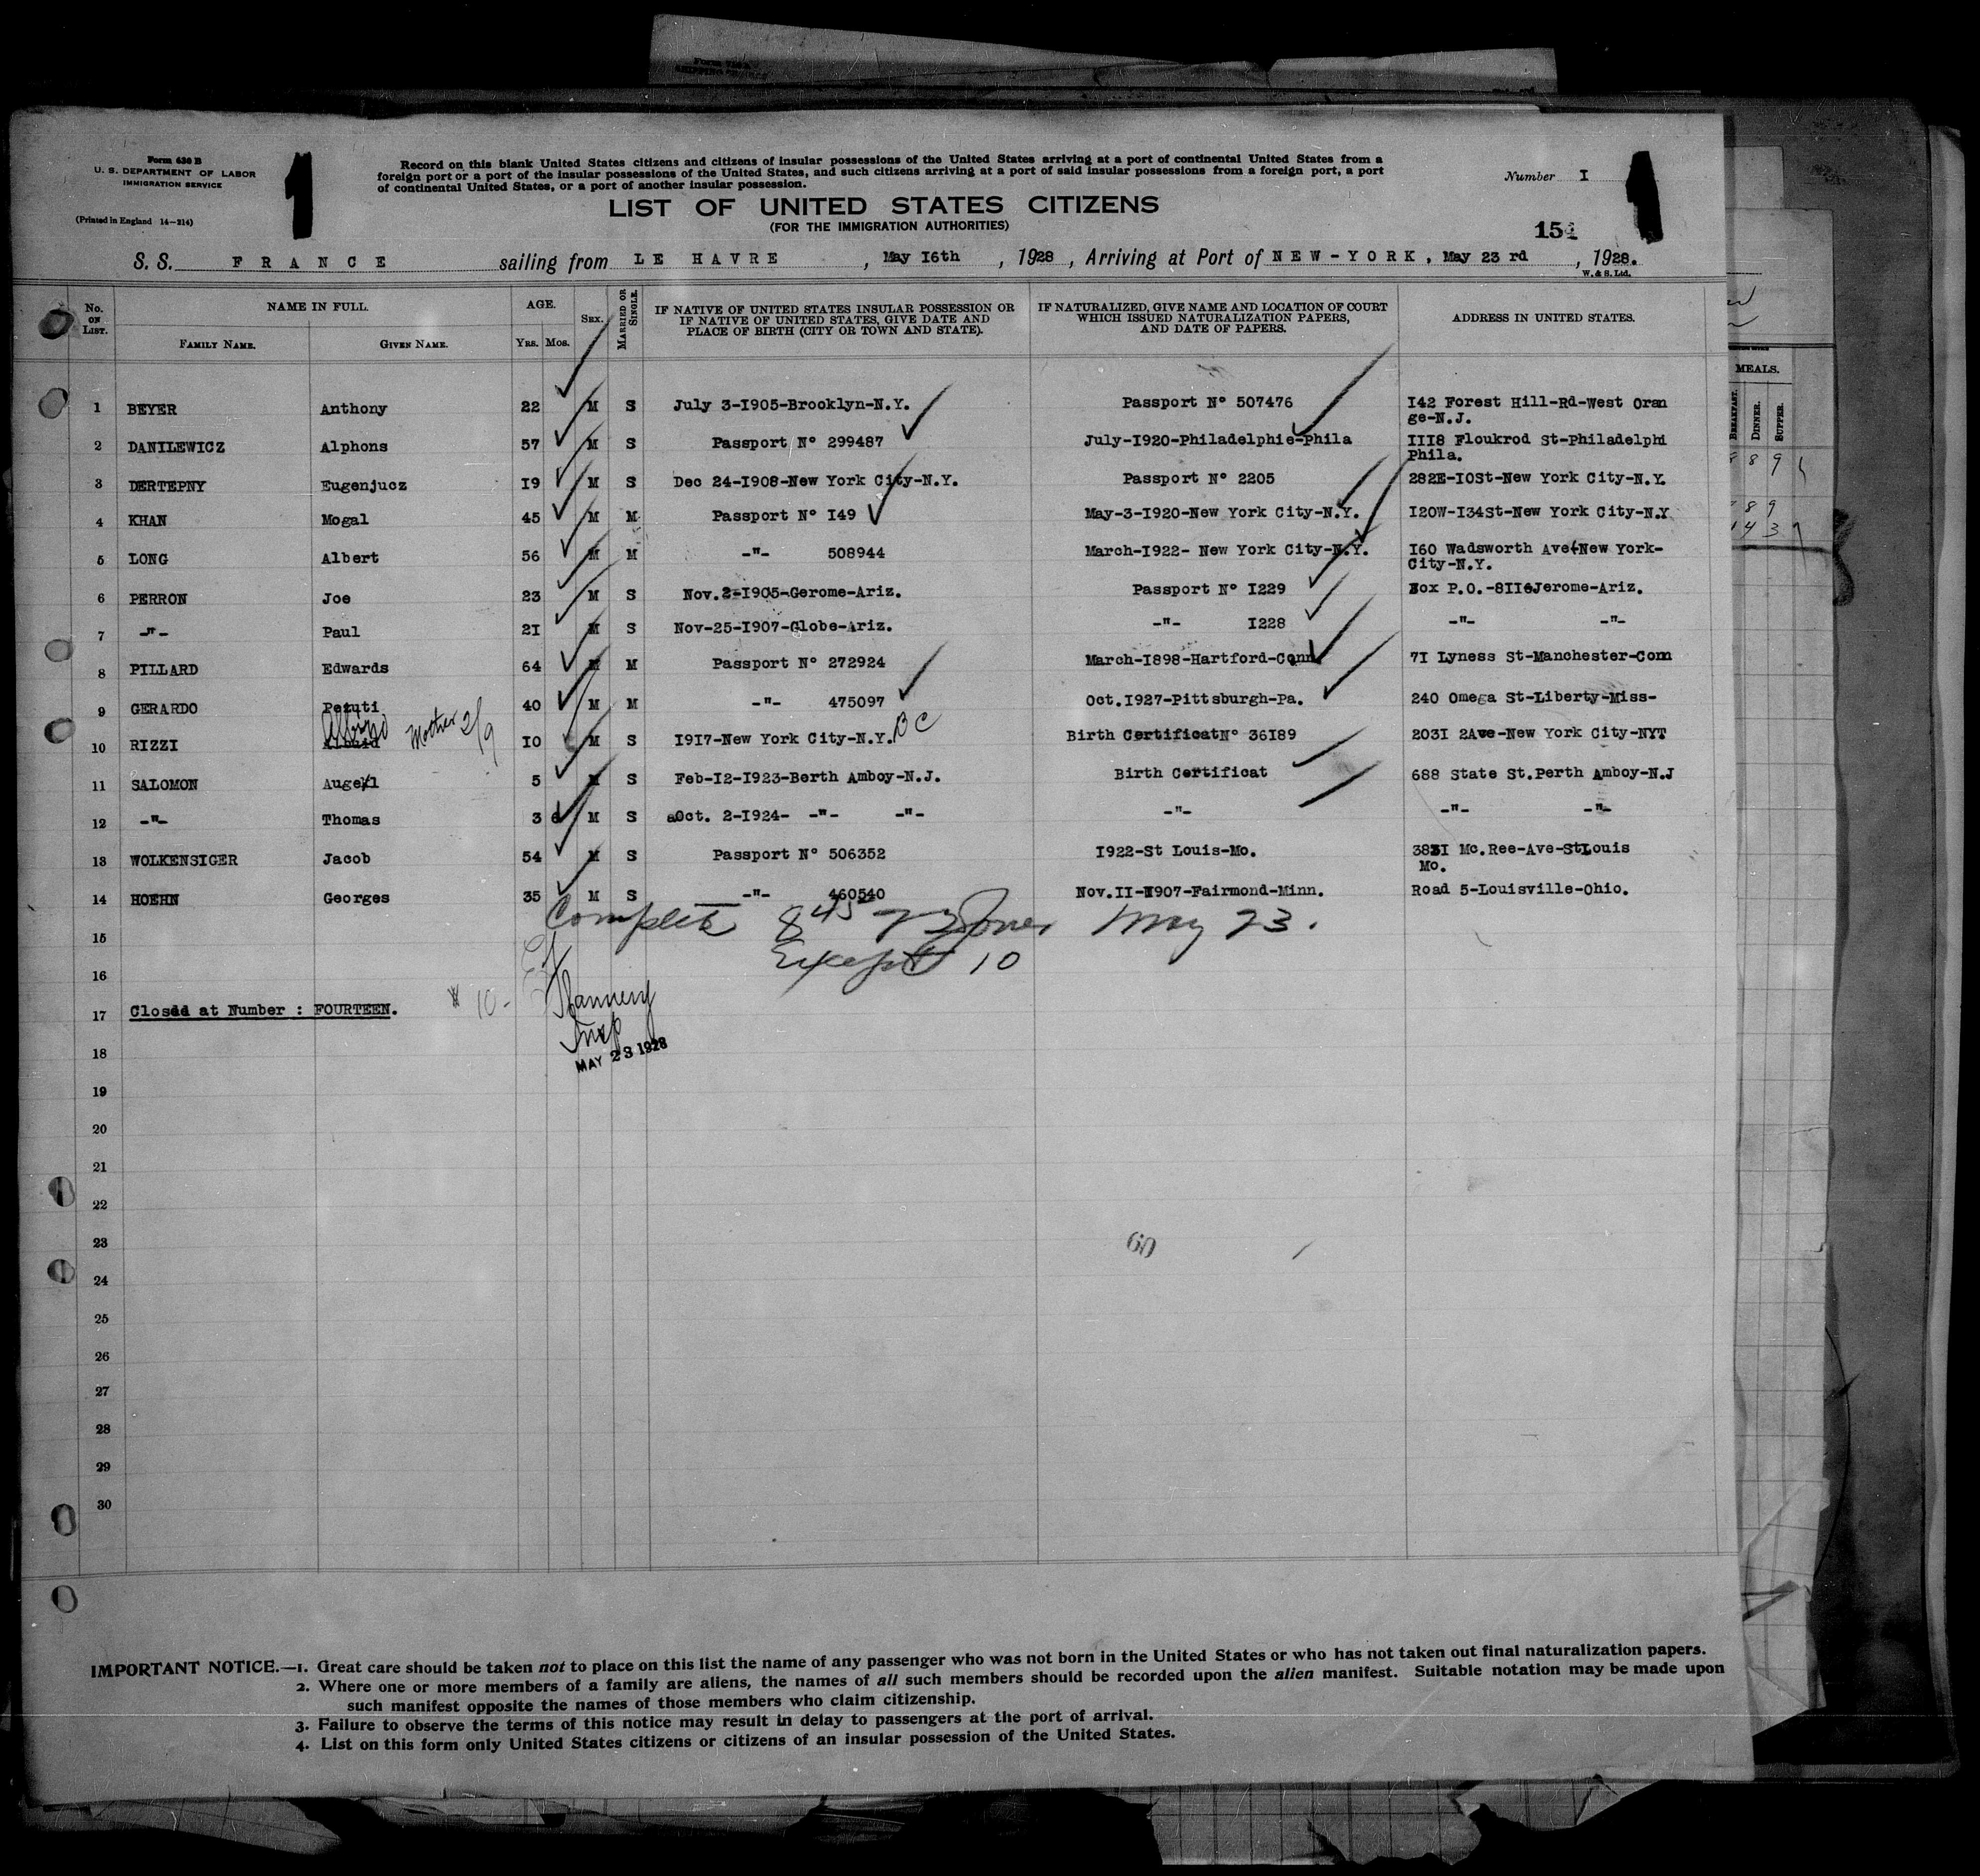 Form 630 B
U. S. DEPARTMENT OF LABOR
IMMIGRATION SERVICE
(Printed in England 14-214)
1
Record on this blank United States citizens and citizens of insular possessions of the United States arriving at a port of continental United States from a
foreign port or a port of the insular possessions of the United States, and such citizens arriving at a port of said insular possessions from a foreign port, a port
of continental United States, or a port of another insular possession.
Number I
LIST OF UNITED STATES CITIZENS
(FOR THE IMMIGRATION AUTHORITIES)
S. S. FRANCE sailing from LE HAVRE, May I6th, 1928, Arriving at Port of NEW-YORK, May 23 rd, 1928.
W. & S. Ltd.
No. ON LIST. NAME IN FULL. FAMILY NAME. GIVEN NAME. AGE. YRS. MOS. SEX. MARRIED OR SINGLE. IF NATIVE OF UNITED STATES INSULAR POSSESSION OR IF NATIVE OF UNITED STATES, GIVE DATE AND PLACE OF BIRTH (CITY OR TOWN AND STATE). IF NATURALIZED, GIVE NAME AND LOCATION OF COURT WHICH ISSUED NATURALIZATION PAPERS, AND DATE OF PAPERS. ADDRESS IN UNITED STATES.
MEALS.
BREAKFAST. DINNER. SUPPER.
1 BEYER Anthony 22 M S July 3-I905-Brooklyn-N.Y. Passport N° 507476 I42 Forest Hill-Rd-West Oran
ge-N.J.
2 DANILEWICZ Alphons 57 M S Passport N° 299487 July-I920-Philadelphie-Phila III8 Floukrod St-Philadelphi
Phila.
3 DERTEPNY Eugenjucz I9 M S Dec 24-I908-New York City-N.Y. Passport N° 2205 282E-IOSt-New York City-N.Y.
4 KHAN Mogal 45 M M Passport N° I49 May-3-I920-New York City-N.Y. I20W-I34St-New York City-N.Y
5 LONG Albert 56 M M -"- 508944 March-I922- New York City-N.Y. I60 Wadsworth Ave-New York-
City-N.Y.
6 PERRON Joe 23 M S Nov.2-I905-Gerome-Ariz. Passport N° I229 Box P.O.-8II-Jerome-Ariz.
7 -"- Paul 2I M S Nov-25-I907-Globe-Ariz. -"- I228 -"- -"-
8 PILLARD Edwards 64 M M Passport N° 272924 March-I898-Hartford-Conn 7I Lyness St-Manchester-Com
9 GERARDO Petuti 40 M M -"- 475097 Oct.I927-Pittsburgh-Pa. 240 Omega St-Liberty-Miss-
Mother 2/9
10 RIZZI IO M S I9I7-New York City-N.Y. BC Birth Certificat N° 36I89 203I 2Ave-New York City-NYT
11 SALOMON Augell 5 M S Feb-I2-I923-Berth Amboy-N.J. Birth Certificat 688 State St.Perth Amboy-N.J
12 -"- Thomas 3 M S Oct. 2-I924- -"- -"- -"- -"- -"-
13 WOLKENSIGER Jacob 54 M S Passport N° 506352 I922-St Louis-Mo. 383I Mc.Ree-Ave-StLouis
Mo.
14 HOEHN Georges 35 M S -"- 460540 Nov.II-I907-Fairmond-Minn. Road 5-Louisville-Ohio.
Complete 8 45 May 23.
15
Except 10
16
17 Closed at Number : FOURTEEN. 10-
Flannery
Insp
MAY 23 1928
18
19
20
21
22
23 60
24
25
26
27
28
29
30
IMPORTANT NOTICE.—1. Great care should be taken not to place on this list the name of any passenger who was not born in the United States or who has not taken out final naturalization papers.
2. Where one or more members of a family are aliens, the names of all such members should be recorded upon the alien manifest. Suitable notation may be made upon
such manifest opposite the names of those members who claim citizenship.
3. Failure to observe the terms of this notice may result in delay to passengers at the port of arrival.
4. List on this form only United States citizens or citizens of an insular possession of the United States.